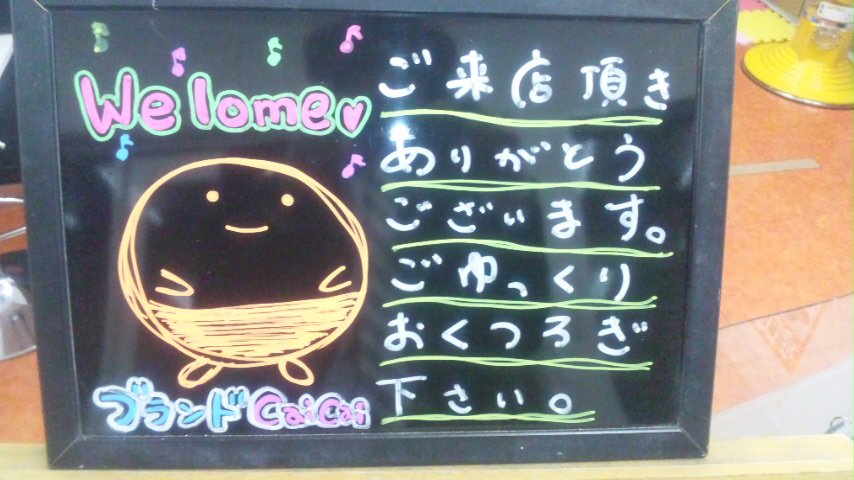 We lome
ご来店頂き
ありがとう
ございます。
ごゆっくり
おくつろぎ
下さい。
ブランドCaiCai